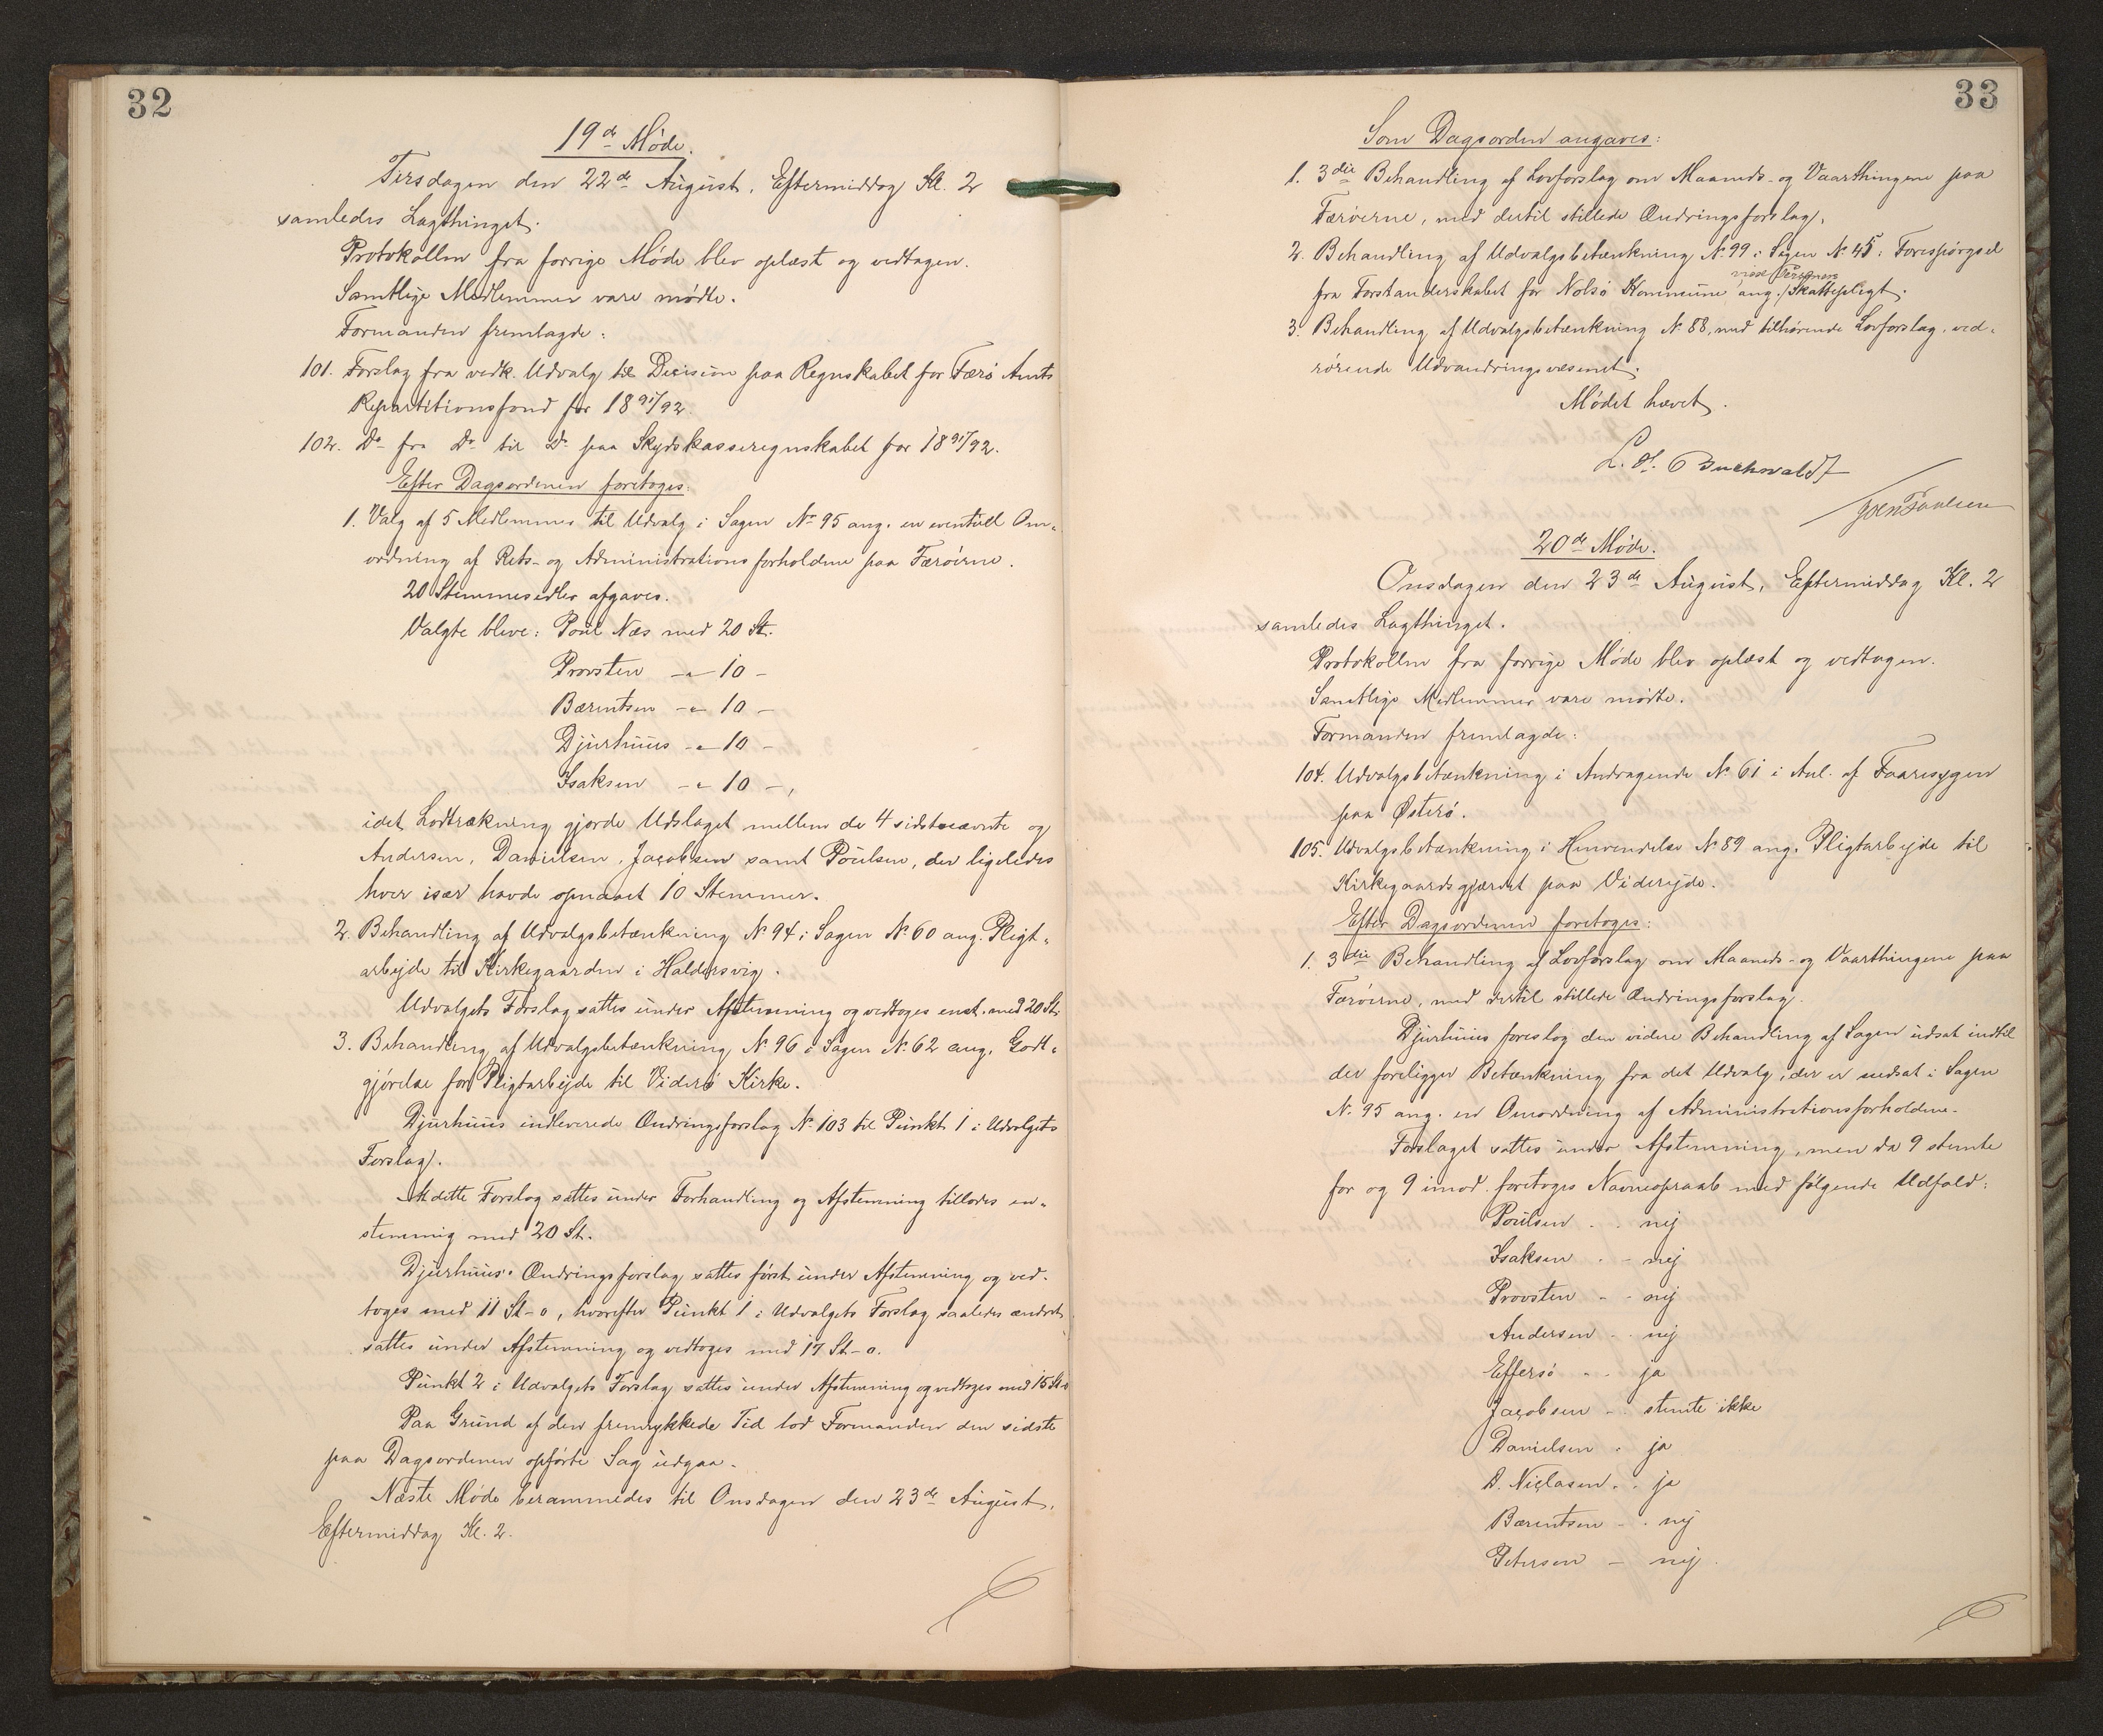 32
19de Møde.
Tirsdagen den 22de August, Eftermiddag Kl. 2
samledes Lagthinget.
Protokollen fra forrige Møde blev oplæst og vedtagen.
Samtlige Medlemmer vare mødte.
Formanden fremlagde:
101. Forslag fra vedk. Udvalg til Decision paa Regnskabet for Færø Amts
Repartitionsfond for 1891/92.
102. Do fra Do til Do paa Skydskasseregnskabet for 1891/92.
Efter Dagsordenen foretoges:
1. Valg af 5 Medlemmer til Udvalg i Sagen No 95 ang. en eventuel Om-
ordning af Rets- og Administrationsforholdene paa Færøerne.
20 Stemmesedler afgaves.
Valgte bleve: Poul Næs med 20 St.
Provsten -"- 10 -
Bærentsen -"- 10 -
Djurhuus -"- 10 -
Isaksen -"- 10 -,
idet Lodtrækning gjorde Udslaget mellem de 4 sidstnævnte og
Andersen, Danielsen, Jacobsen samt Poulsen, der ligeledes
hver især havde opnaaet 10 Stemmer.
2. Behandling af Udvalgsbetænkning No 94 i Sagen No 60 ang. Pligt-
arbejde til Kirkegaarden i Haldersvig.
Udvalgets Forslag sattes under Afstemning og vedtoges enst. med 20 St.
3. Behandling af Udvalgsbetænkning No 96 i Sagen No 62 ang. Godt-
gjørelse for Pligtarbejde til Viderø Kirke.
Djurhuus indleverede Ændringsforslag No 103 til Punkt 1 i Udvalgets
Forslag.
At dette Forslag sattes under Forhandling og Afstemning tillodes en-
stemmig med 20 St.
Djurhuus' Ændringsforslag sattes først under Afstemning og ved-
toges med 11 St-0, hvorefter Punkt 1 i Udvalgets Forslag saaledes ændret
sattes under Afstemning og vedtoges med 17 St-0.
Punkt 2 i Udvalgets Forslag sattes under Afstemning og vedtoges med 15 St-0
Paa Grund af den fremrykkede Tid lod Formanden den sidste
paa Dagsordenen opførte Sag udgaa.
Næste Møde berammedes til Onsdagen den 23de August,
Eftermiddag Kl. 2.
33
Som Dagsorden angaves:
1. 3die Behandling af Lovforslag om Maaneds- og Vaarthingene paa
Færøerne, med dertil stillede Ændringsforslag.
2. Behandling af Udvalgsbetænkning No 99 i Sagen No 45: Forespørgsel
fra Forstanderskabet for Nolsø Kommune ang. visse Personers Skattepligt.
3. Behandling af Udvalgsbetænkning No 88, med tilhørende Lovforslag, ved-
rørende Udvandringsvæsenet.
Mødet hævet.
Buchwaldt
Joen Poulsen
20de Møde.
Onsdagen den 23de August, Eftermiddag Kl. 2
samledes Lagthinget.
Protokollen fra forrige Møde blev oplæst og vedtagen.
Samtlige Medlemmer vare mødte.
Formanden fremlagde:
104. Udvalgsbetænkning i Andragende No 61 i Anl. af Faaresygen
paa Østerø.
105. Udvalgsbetænkning i Henvendelse No 89 ang. Pligtarbejde til
Kirkegaardsgjærdet paa Viderejde.
Efter Dagsordenen foretoges:
1. 3die Behandling af Lovforslag om Maaneds- og Vaarthingene paa
Færøerne, med dertil stillede Ændringsforslag.
Djurhuus foreslog den videre Behandling af Sagen udsat indtil
der foreligger Betænkning fra det Udvalg, der er nedsat i Sagen
No 95 ang. en Omordning af Administrationsforholdene.
Forslaget sattes under Afstemning, men da 9 stemte
for og 9 imod foretoges Navneopraab med følgende Udfald:
Poulsen - - nej
Isaksen - - nej
Provsten - - nej
Andersen - - nej
Effersø - - ja
Jacobsen - - stemte ikke
Danielsen - ja
D. Niclasen - - ja
Bærentsen - - nej
Petersen - nej